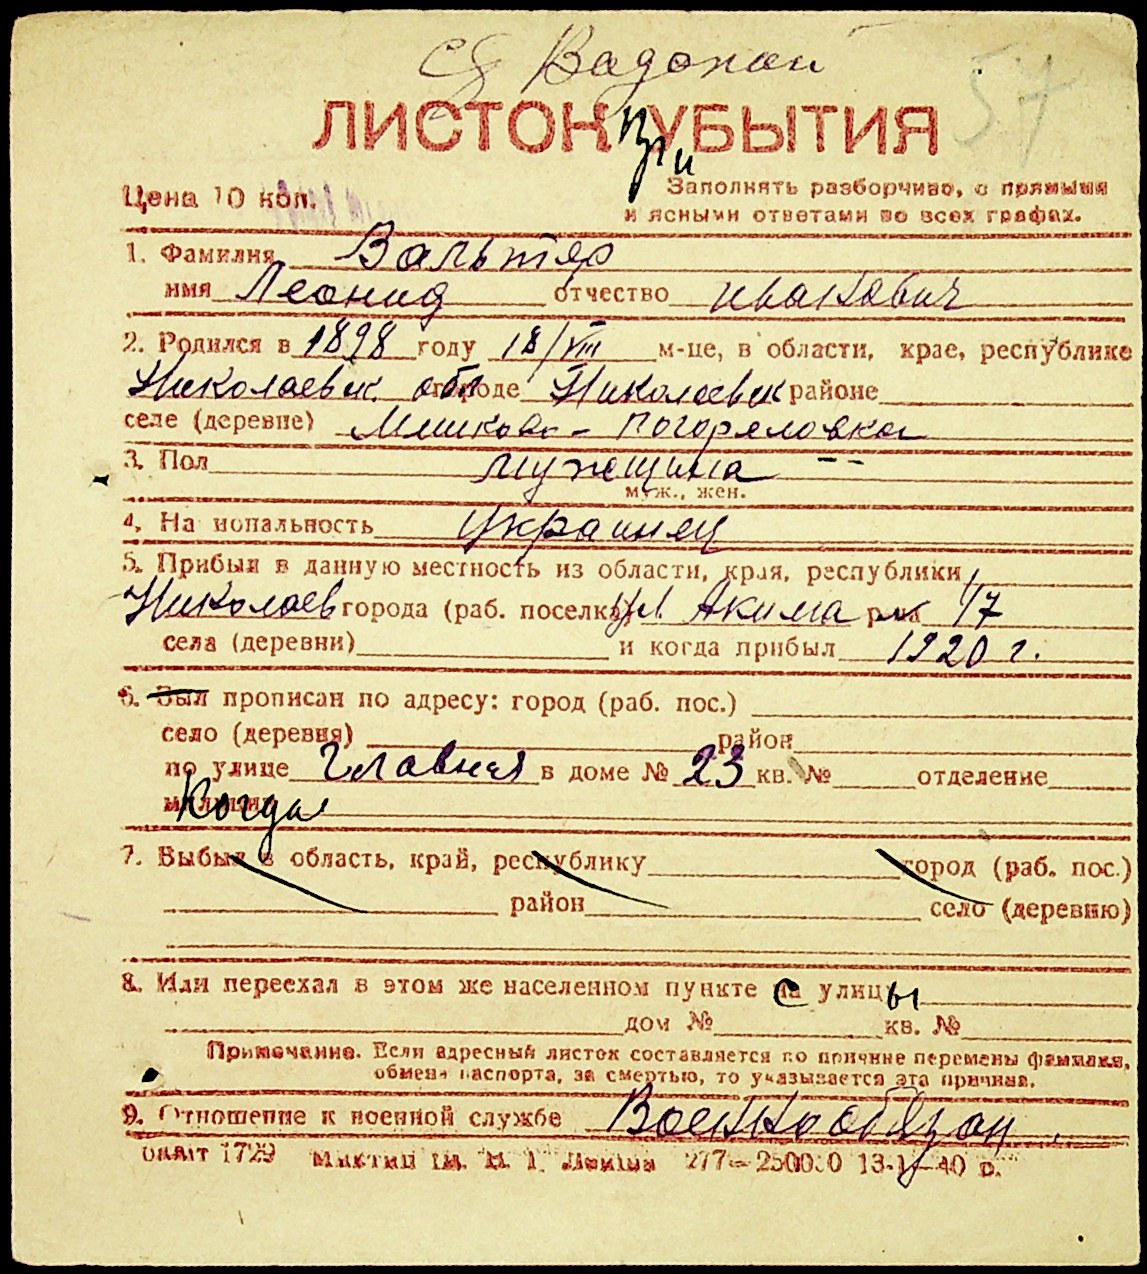 Водопой 57
ЛИСТОК при УБЫТИЯ
Цена 10 коп. Заполнять разборчиво, с прямыми
и ясными ответами во всех графах.
1. Фамилия Вальтер
имя Леонид отчество иванович
2. Родился в 1898 году 18/VIII м-це, в области, крае, республике
Николаевск. обл городе Николаевск районе
селе (деревне) Мешково - Погореловка
3. Пол мужщина
муж., жен.
4. На иональность украинец
5. Прибыл в данную местность из области, края, республики
Николаев города (раб. поселка) ул. Акима р-на 17
села (деревни) и когда прибыл 1920 г.
6. Был прописан по адресу: город (раб. пос.)
село (деревня) район
по улице Главная в доме № 23 кв. № отделение
милиции Когда
7. Выбыл в область, край, республику город (раб. пос.)
район село (деревню)
8. Или переехал в этом же населенном пункте с улицы
дом № кв. №
Примечание. Если адресный листок составляется по причине перемены фамилии,
обмена паспорта, за смертью, то указывается эта причина.
9. Отношение к военной службе Военнообязан.
1729 277—250000 13-1-40 р.